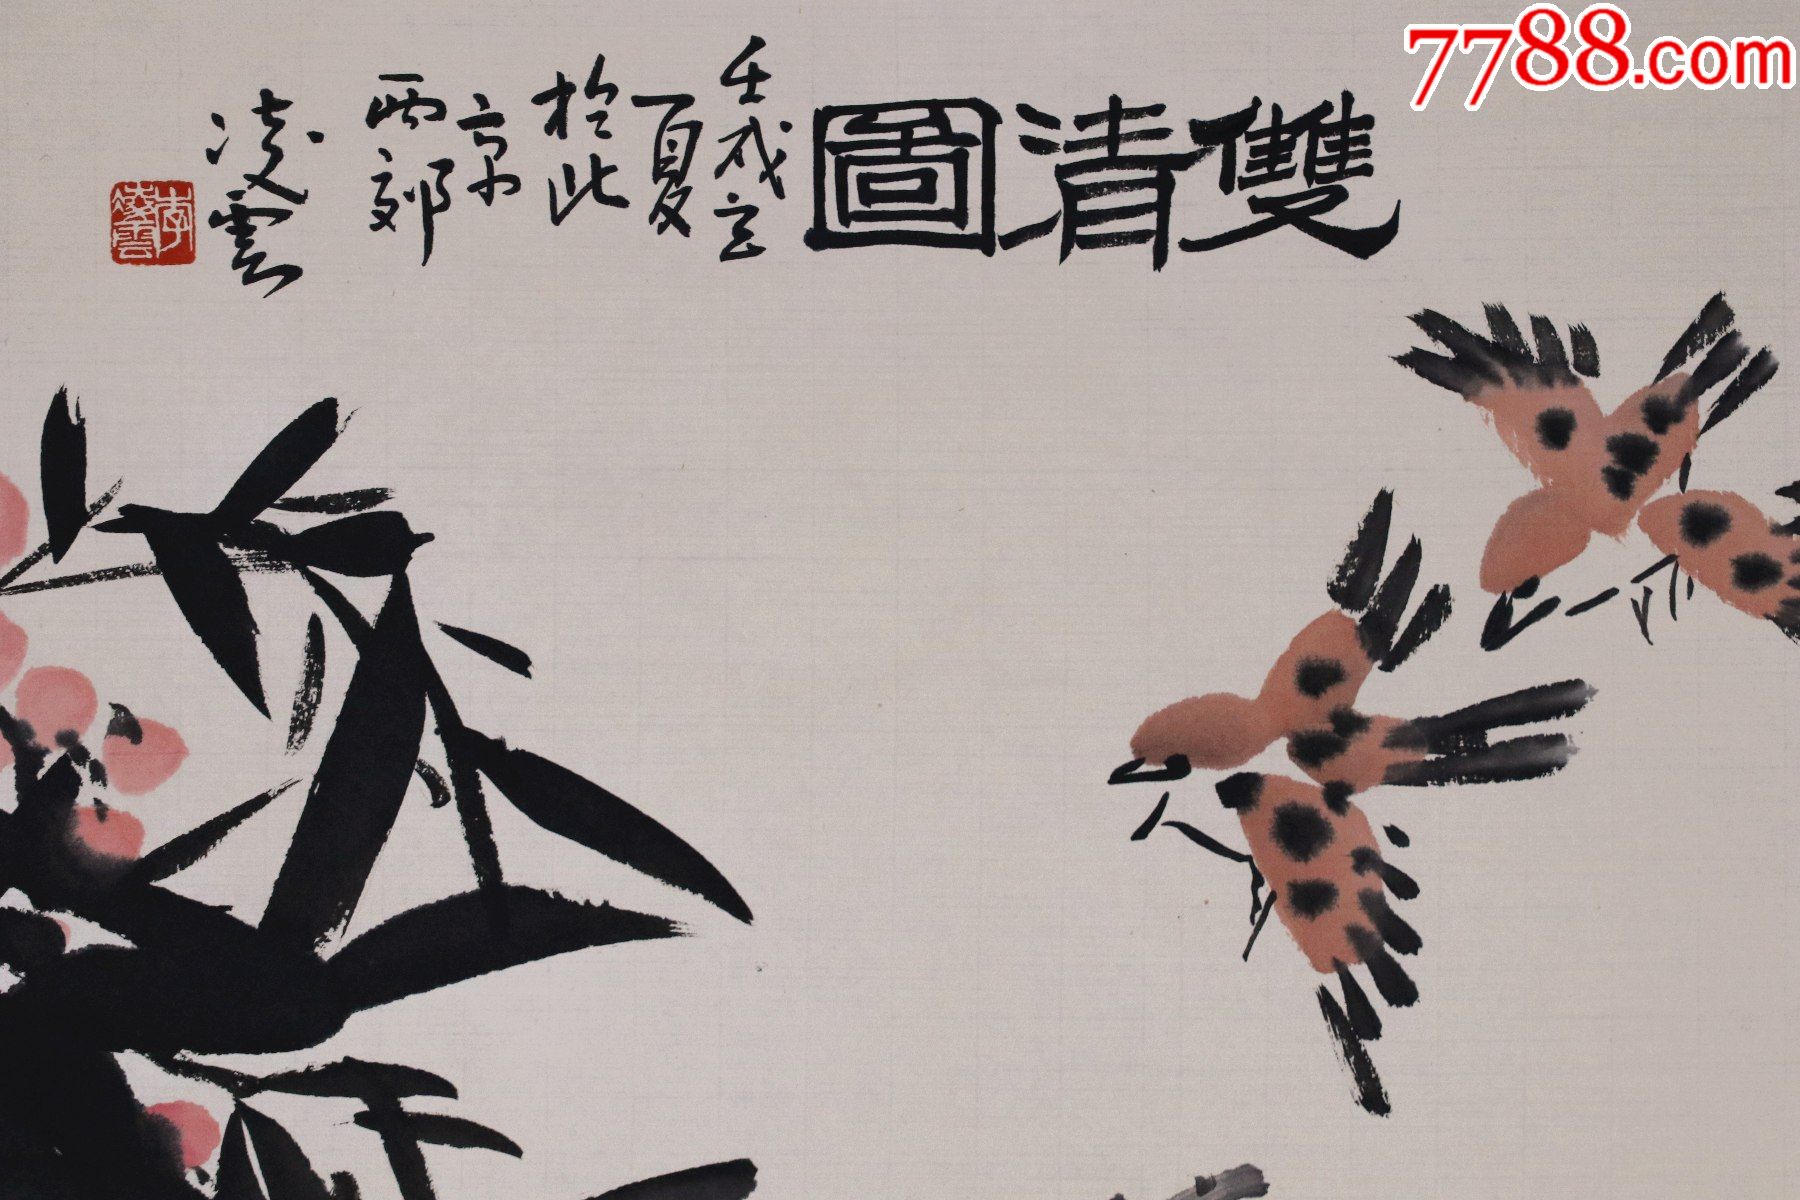 7788.com
雙清圖
壬戌立
夏
於北
京
西郊
凌雲
李凌雲